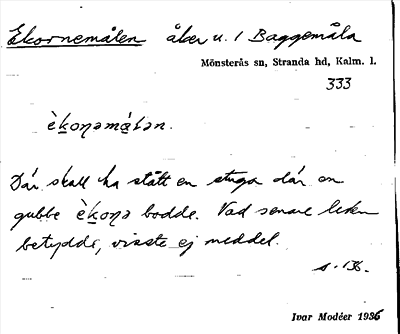 Ekornemålen åker u. 1 Baggemåla
Mönsterås sn, Stranda hd, Kalm. l.
333
èḵoṇəmá̱lən.
Där skall ha stått en stuga där en
gubbe èḵoṇə bodde. Vad senare leden
betydde, visste ej meddel.
s. 136.
Ivar Modéer 1936